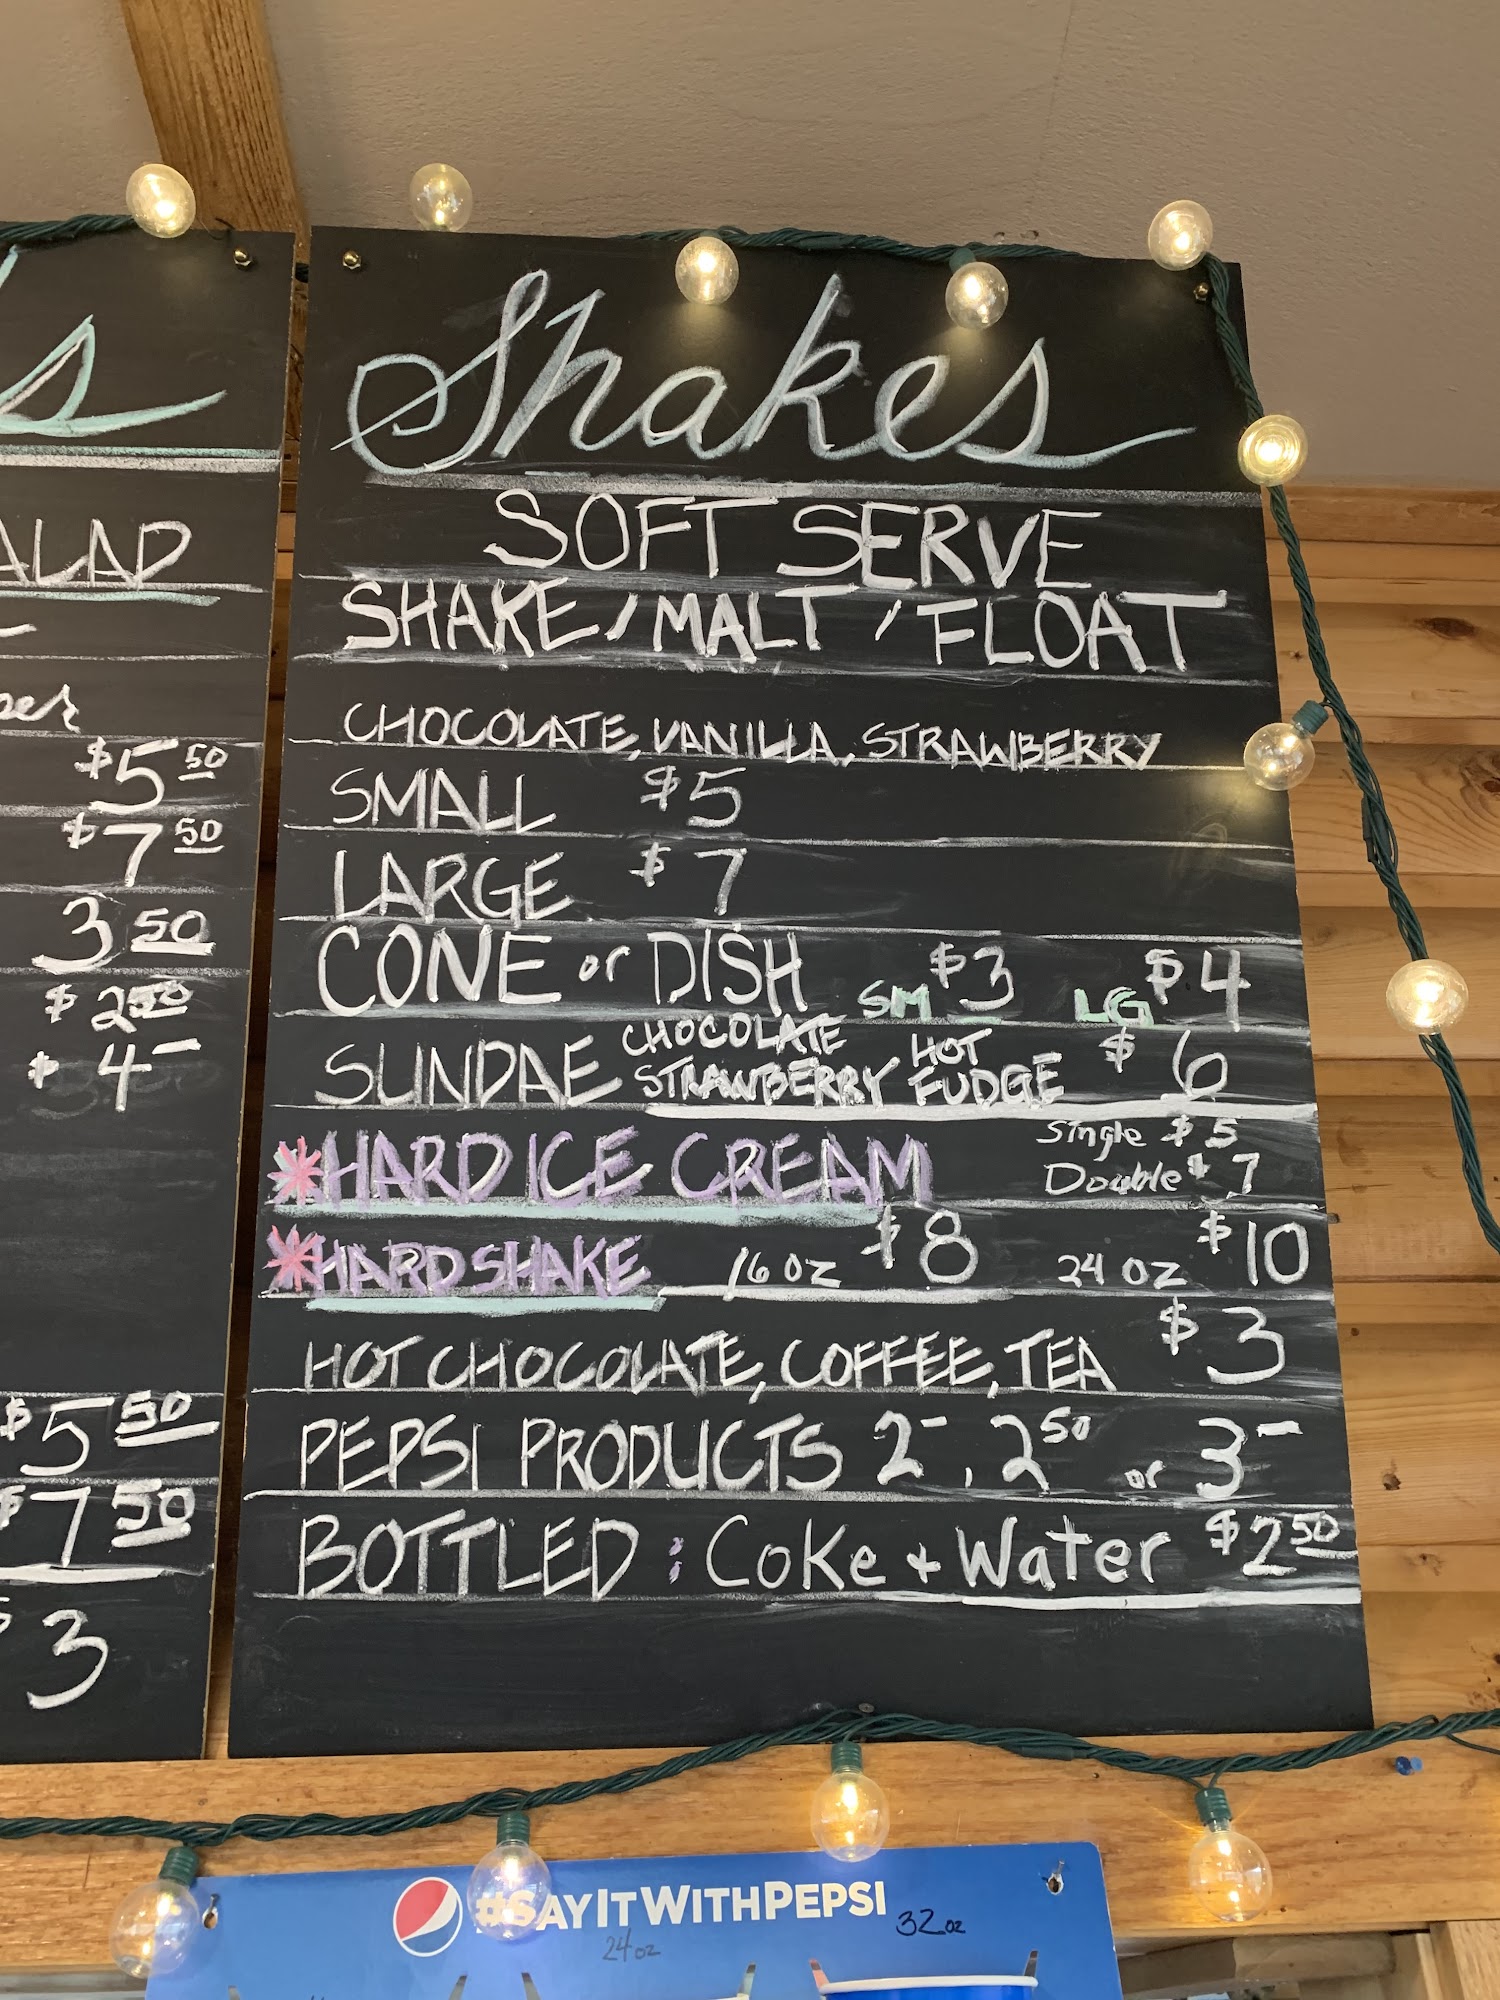 s
ALAD
$5 50
$7 50
3 50
$2 50
$4 -
$5 50
$7 50
$3
Shakes
SOFT SERVE
SHAKE / MALT / FLOAT
CHOCOLATE, VANILLA, STRAWBERRY
SMALL $5
LARGE $7
CONE or DISH SM $3 LG $4
SUNDAE CHOCOLATE STRAWBERRY HOT FUDGE $6
*HARD ICE CREAM Single $5
Double $7
*HARD SHAKE 16 OZ $8 24 OZ $10
HOT CHOCOLATE, COFFEE, TEA $3
PEPSI PRODUCTS 2-, 2 50 or 3-
BOTTLED: Coke + Water $2 50
#SAYITWITHPEPSI
24 oz 32 oz